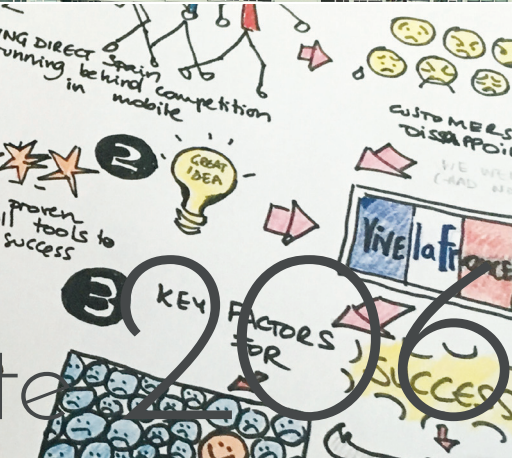 NG DIRECT Spain
running behind competition
in mobile
CUSTOMERS
DISSAPPOI
2
GREAT
IDEA
WE WE
proven
tools to
success
ViVE la France
3 KEY FACTORS
FOR
SUCCESS
te 206